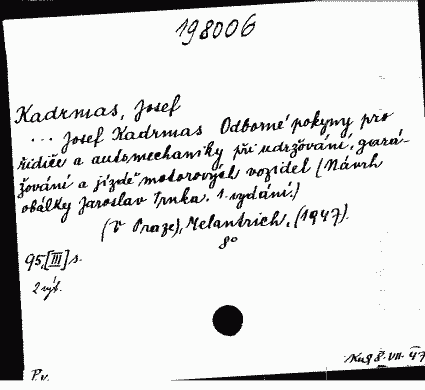 198006
Kadrmas, Josef
... Josef Kadrmas Odborné pokyny pro
řidiče a automechaniky při udržování, gará-
žování a jízdě motorových vozidel (Návrh
obálky Jaroslav Trnka. 1. vydání.)
(V Praze), Melantrich, (1947).
8°
95, [III] s.
2 výt.
P.v.
8. VII. 47